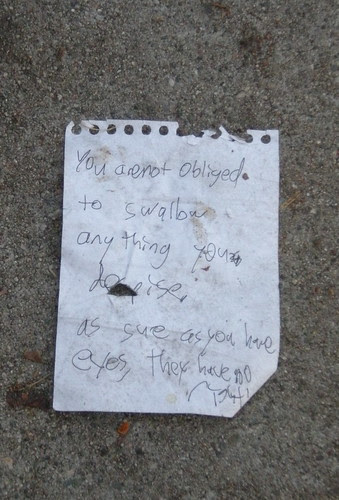 You are not obliged
to swallow
any thing you
despise,
as sure as you have
eyes, they have no